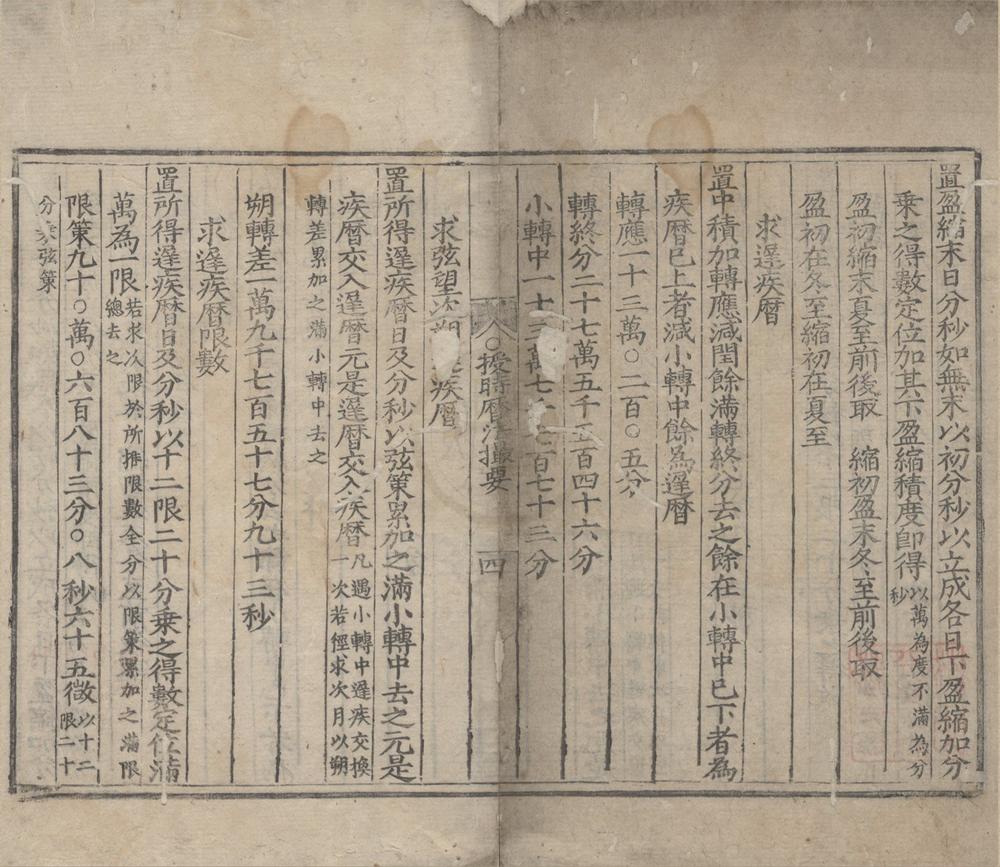 置盈縮末日分秒如無末以初分秒以立成各日下盈縮加分
乗之得數定位加其下盈縮積度卽得以萬為度不滿為分秒
盈初縮末夏至前後取 縮初盈末冬至前後取
盈初在冬至縮初在夏至
求遲疾曆
置中積加轉應減閏餘滿轉終分去之餘在小轉中已下者為
疾曆已上者減小轉中餘為遲曆
轉應一十三萬〇二百〇五分
轉終分二十七萬五千五百四十六分
小轉中一十三萬七千七百七十三分
授時曆法撮要 四
求弦望次朔疾曆
置所得遲疾曆日及分秒以弦策累加之滿小轉中去之元是
疾曆交入遲曆元是遲曆交入疾曆凡遇小轉中遲疾交換一次若徑求次月以朔
轉差累加之滿小轉中去之
朔轉差一萬九千七百五十七分九十三秒
求遲疾曆限數
置所得遲疾曆日及分秒以十二限二十分乗之得數定位滿
萬為一限若求次限於所推限數全分以限策累加之滿限總去之
限策九十〇萬〇六百八十三分〇八秒六十五微以十二限二十
分乗弦策